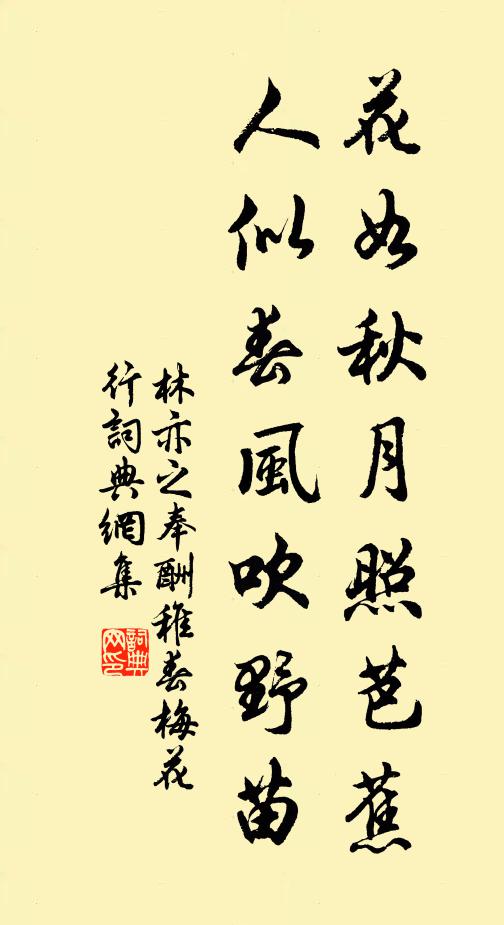 花如秋月照芭蕉
人似春風吹野苗
林亦之奉酬稚春梅花
行詞典網集
詞典
网印